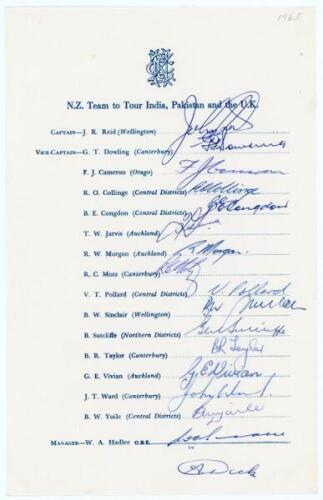 1965
N.Z. Team to Tour India, Pakistan and the U.K.
CAPTAIN—J. R. Reid (Wellington)
VICE-CAPTAIN—G. T. Dowling (Canterbury) G Dowling
F. J. Cameron (Otago) F J Cameron
R. O. Collinge (Central Districts) R O Collinge
B. E. Congdon (Central Districts) B E Congdon
T. W. Jarvis (Auckland)
R. W. Morgan (Auckland) R Morgan
R. C. Motz (Canterbury)
V. T. Pollard (Central Districts) V. Pollard
B. W. Sinclair (Wellington)
B. Sutcliffe (Northern Districts) Bert Sutcliffe
B. R. Taylor (Canterbury) B R Taylor
G. E. Vivian (Auckland) G. E. Vivian
J. T. Ward (Canterbury) John Ward
B. W. Yuile (Central Districts)
MANAGER—W. A. Hadlee O.B.E.
A Dick